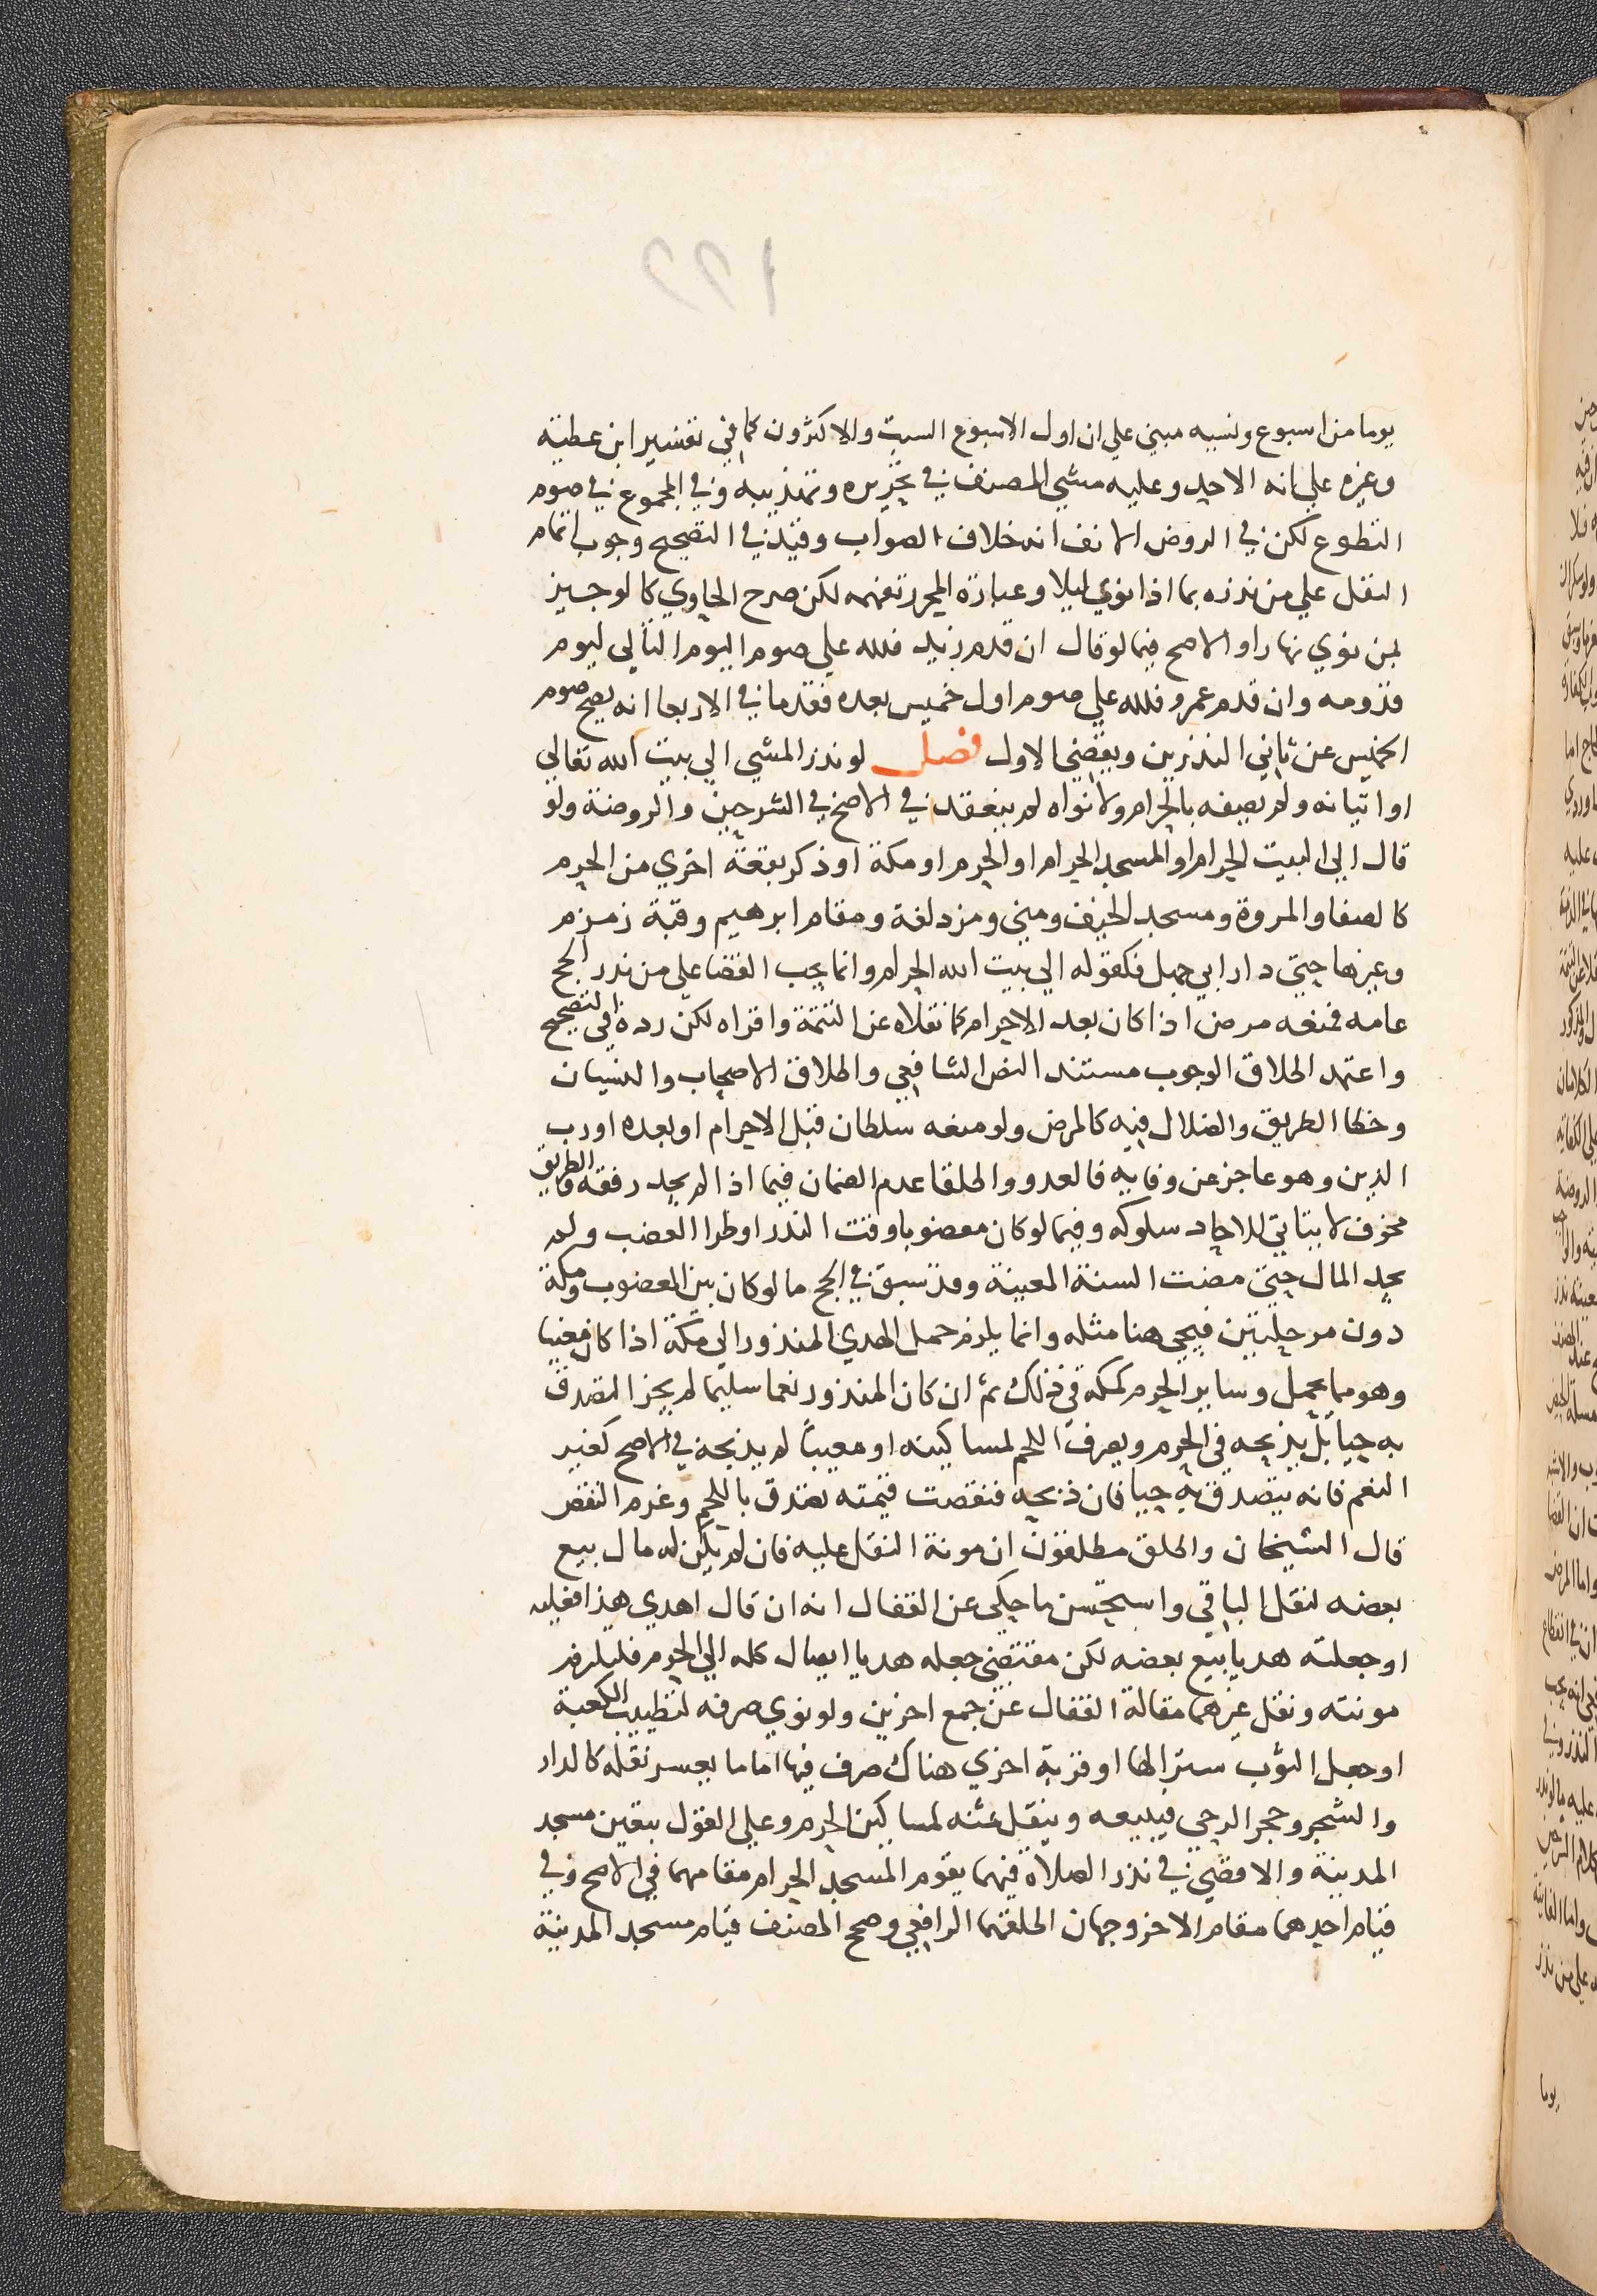 يوما من اسبوع ونسيه مبني علي ان اول الاسبوع السبت والاكثرون كما في تفسير ابن عطية
وغيره علي انه الاحد وعليه مشي المصنف في تحريره وتهذيبه وفي المجموع في صوم
التطوع لكن في الروض الانف انه خلاف الصواب وقيد في التصحيح وجوب اتمام
النفل علي من نذره بما اذا نوي ليلا وعبارة المحرر تفهمه لكن صرح الحاوي كالوجيز
بمن نوي نهارا والاصح فيما لو قال ان قدم زيد فلله علي صوم اليوم التالي ليوم
قدومه وان قدم عمرو فلله علي صوم اول خميس بعده فقدما في الاربعا انه يصح صوم
الخميس عن ثاني النذرين ويقضي الاول فصل لو نذر المشي الي بيت الله تعالي
او اتيانه ولم يصفه بالحرام ولا نواه لم ينعقد في الاصح في الشرحين والروضة ولو
قال الي البيت الحرام او المسجد الحرام او الحرم او مكة او ذكر بقعة اخري من الحرم
كالصفا والمروة ومسجد الخيف ومني ومزدلفة ومقام ابرهيم وقبة زمزم
وغيرها حتي دار ابي جهل فكقوله الي بيت الله الحرام وانما يجب القضا علي من نذر الحج
عامه فمنعه مرض اذا كان بعد الاحرام كما نقلاه عن التتمة واقراه لكن رده في التصحيح
واعتمد اطلاق الوجوب مستند النص الشافعي واطلاق الاصحاب والنسيان
وخطا الطريق والضلال فيه كالمرض ولو منعه سلطان قبل الاحرام او بعده او رب
الدين وهو عاجز عن وفايه فالعدو واطلقا عدم الضمان فيما اذا لم يجد رفقة والطريق
مخوف لا يتاتي للاحاد سلوكه وفيما لو كان معضوبا وقت النذر او طرا العضب ولم
يجد المال حتي مضت السنة المعينة وقد سبق في الحج ما لو كان بين المعضوب ومكة
دون مرحلتين فيجي هنا مثله وانما يلزم حمل الهدي المنذور الي مكة اذا كان معينا
وهو مما يحمل وساير الحرم كمكة في ذلك ثم ان كان المنذور نعما سليما لم يجز التصدق
به حيا بل يذبحه في الحرم ويفرق اللحم لمساكينه او معيبا لم يذبحه في الاصح كغير
النعم فانه يتصدق به حيا فان ذبحه فنقصت قيمته تصدق باللحم وغرم النقص
قال الشيخان واطلق مطلقون ان مونة النقل عليه فان لم يكن له مال بيع
بعضه لنقل الباقي واستحسن ما حكي عن القفال انه ان قال اهدي هذا فعليه
او جعلته هديا بيع بعضه لكن مقتضي جعله هديا ايصال كله الي الحرم فليلزم
مونته ونقل غيرهما مقالة القفال عن جمع اخرين ولو نوي صرفه لتطييب الكعبة
او جعل الثوب سترا لها او قربة اخري هناك صرف فيها اما ما يعسر نقله كالدار
والشجر وحجر الرحي فيبيعه وينقل ثمنه لمساكين الحرم وعلي القول بتعين مسجد
المدينة والاقصي في نذر الصلاة فيهما يقوم المسجد الحرام مقامهما في الاصح وفي
قيام احدهما مقام الاخر وجهان اطلقهما الرافعي وصحح المصنف قيام مسجد المدينة